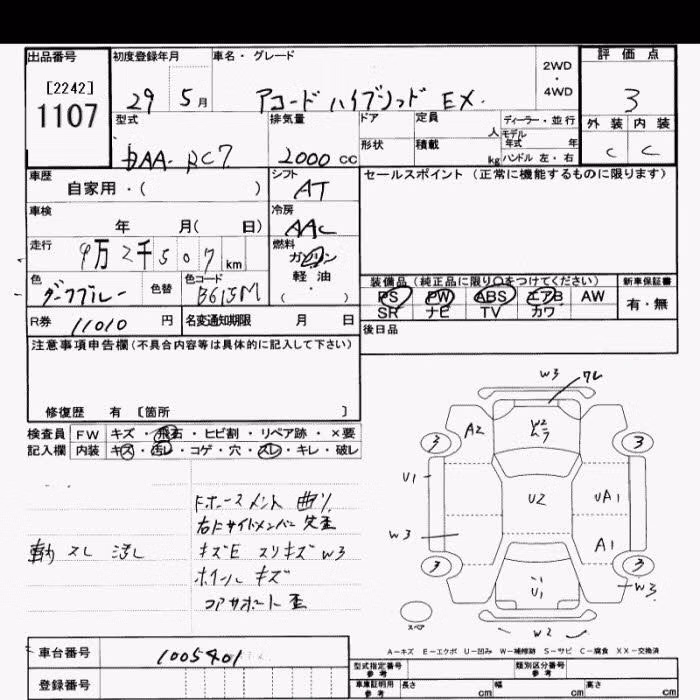 出品番号
[2242]
1107
初度登録年月
29 5月
車名・グレード
アコード ハイブリッド EX.
2WD
・
4WD
評価点
3
外装 内装
C C
型式
DAA-RC7
排気量
2000 cc
ドア
形状
定員
人
積載
kg
ディーラー・並行
モデル年式 年
ハンドル 左・右
車歴
自家用・( )
シフト
AT
セールスポイント(正常に機能するものに限ります)
車検
年 月( 日)
冷房
AAC
走行
9万2千507km
燃料
ガソリン
軽・油
( ・ )
色
ダークブルー
色替
色コード
B615M
装備品(純正品に限り○をつけてください)
PS PW ABS エアB AW
SR ナビ TV カワ
新車保証書
有・無
R券 11010 円
名変通知期限 月 日
後日品
注意事項申告欄(不具合内容等は具体的に記入して下さい)
修復歴 有 [箇所 ]
検査員記入欄
FW キズ・飛石・ヒビ割・リペア跡・×要
内装 キズ・汚レ・コゲ・穴・スレ・キレ・破レ
スレ
キズE スリキズ W3
ホイール キズ
コアサポート 歪
W3
A2
W2
3
3
U1
U2
UA1
W3
A1
3
3
U1
W3
W2
スペア
A-キズ E-エクボ U-凹み W-補修跡 S-サビ C-腐食 XX-交換済
車台番号
1005401
登録番号
型式指定番号
参考
類別区分番号
参考
車庫証明用
参考
長さ cm
幅 cm
高さ cm